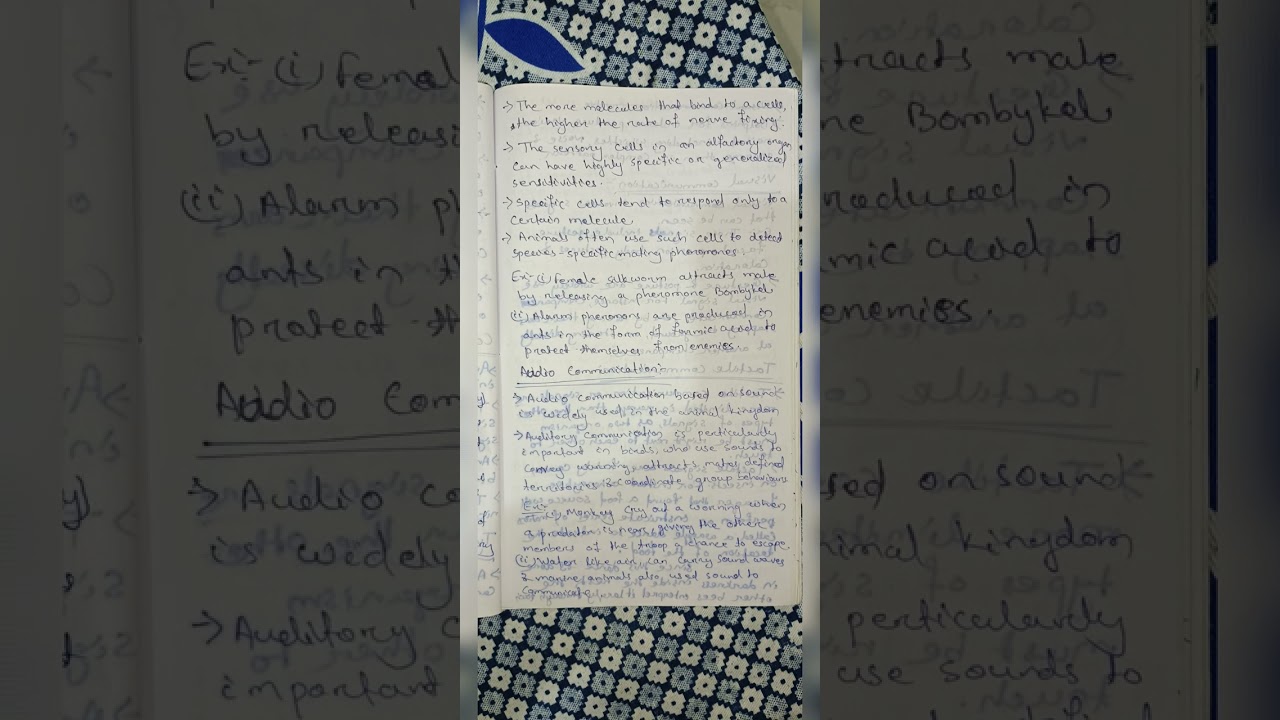 → The more molecules that bind to a cells,
the higher the rate of nerve firing.
→ The sensory cells in an olfactory organ
can have highly specific or generalized
sensitivities.
→ Specific cells tend to respond only to a
certain molecule.
→ Animals often use such cells to detect
species-specific mating pheromones.
Ex:- (i) Female silkworm attracts male
by releasing a pheromone Bombykol
(ii) Alarm pheromons are produced in
ants in the form of formic acid to
protect themselves from enemies.
Audio Communication:-
→ Audio communication based on sound
is widely used in the animal kingdom
→ Auditory communication is perticularly
important in birds, who use sounds to
convey warning, attracts mates defined
territories & coordinate group behaviours
Ex:-
(i) Monkey cry out a worning when
a predator is near giving the other
members of the troop a chance to escape.
(ii) Water like air, can carry sound waves
& marine animals also used sound to
communicate.